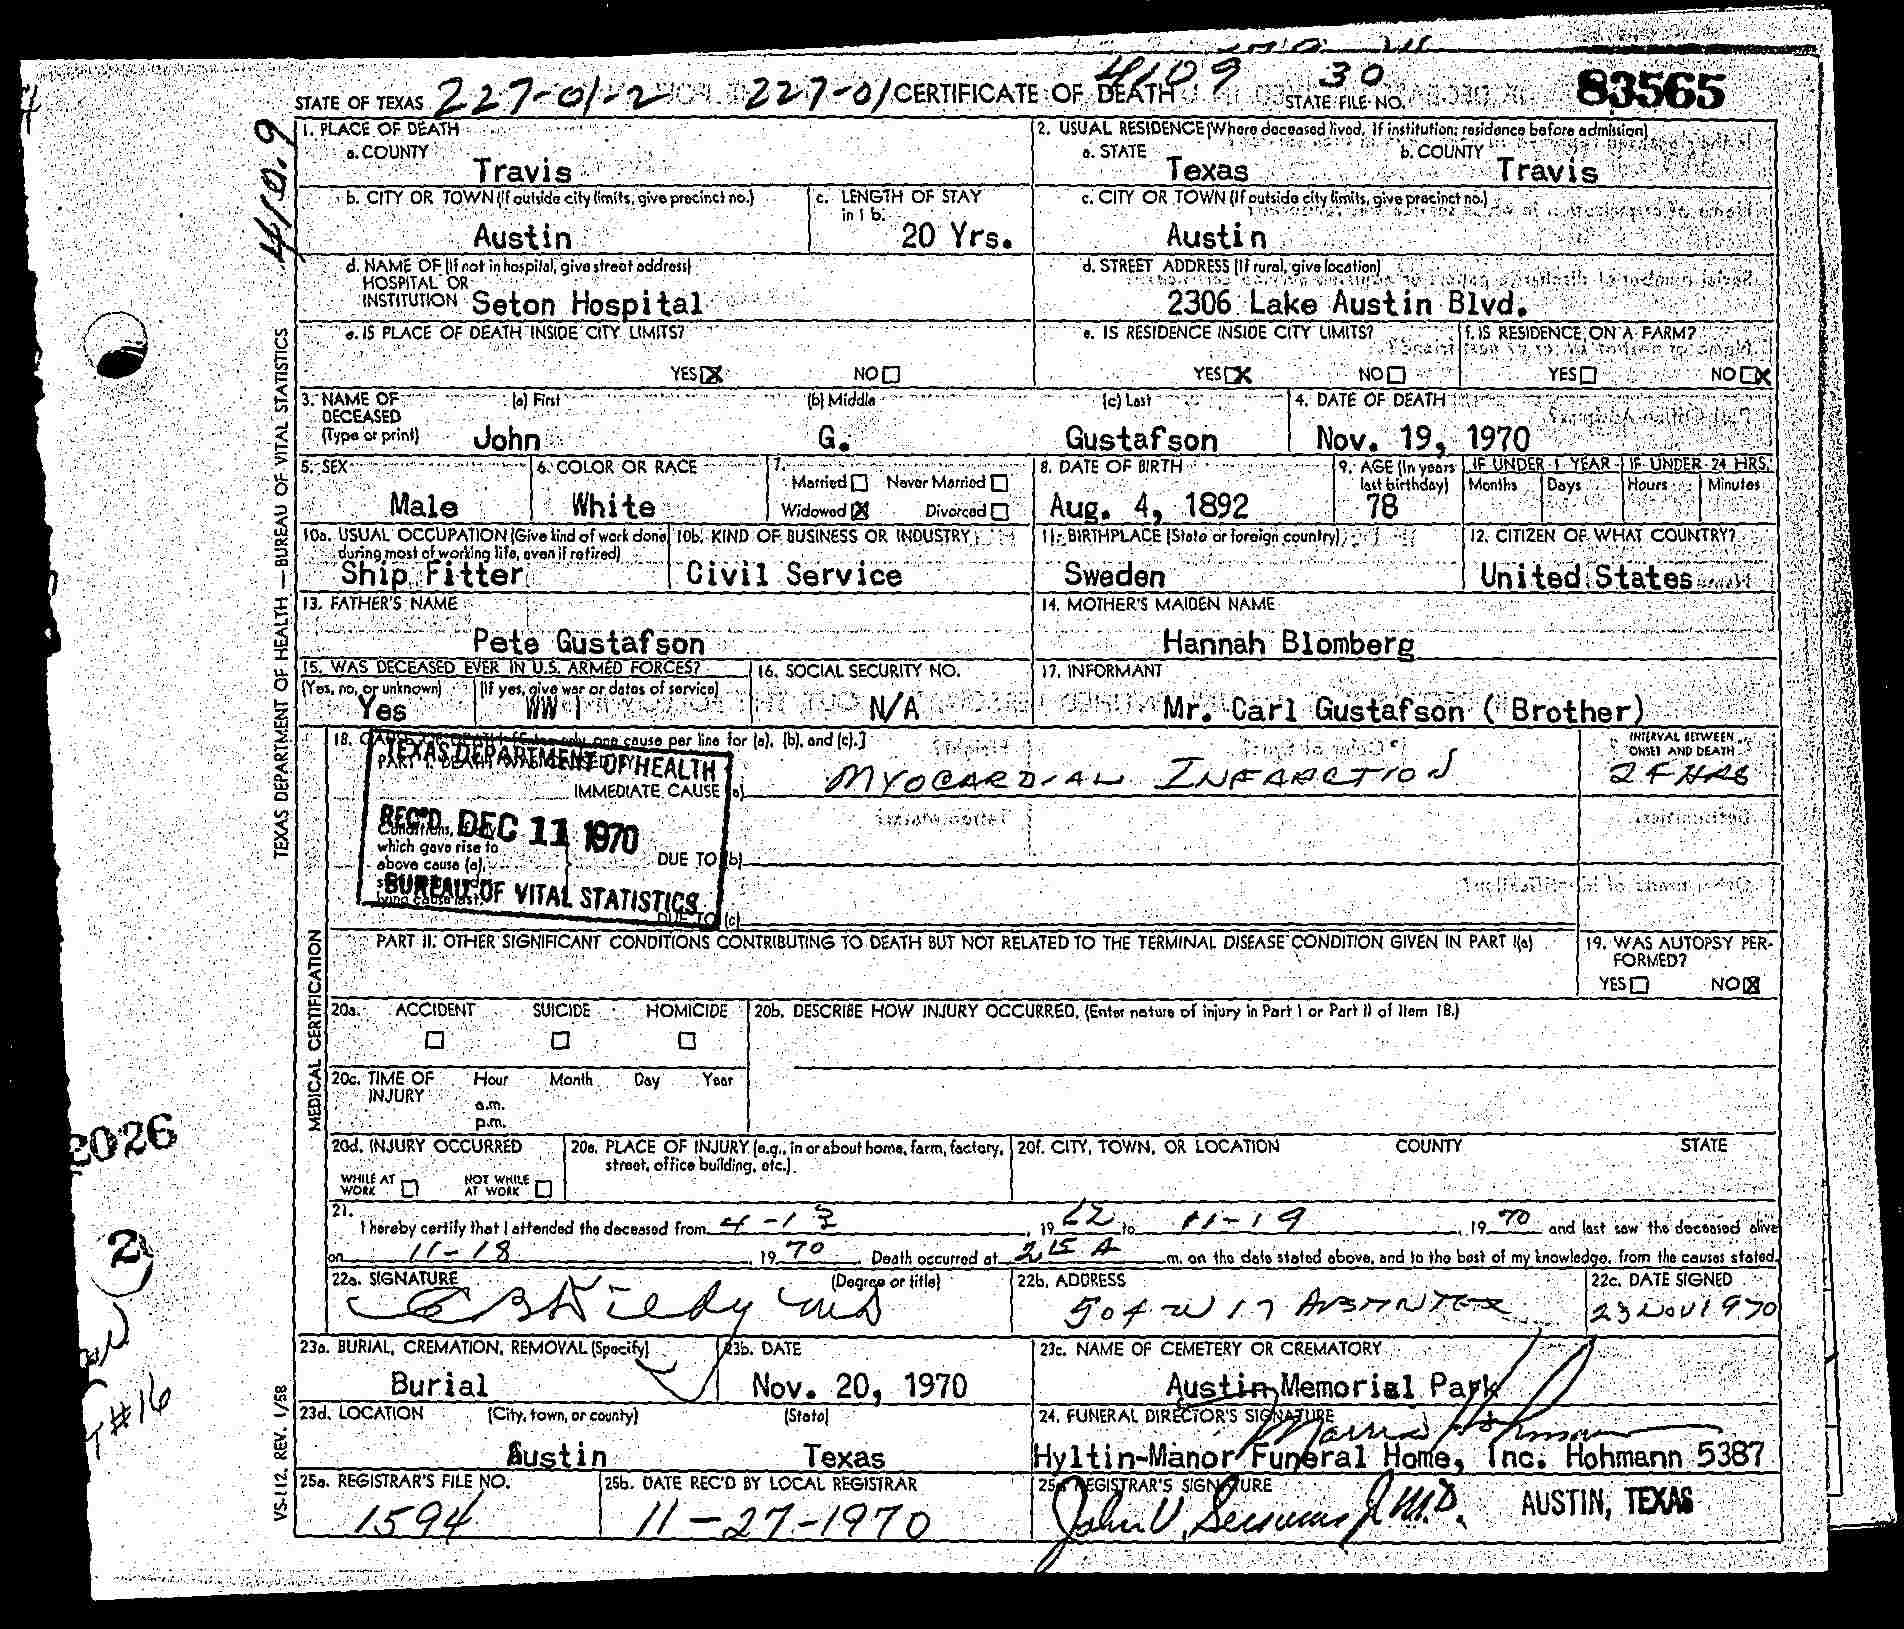 4109 30
STATE OF TEXAS 227-01-2 227-01 CERTIFICATE OF DEATH STATE FILE NO. 83565
410.9
TEXAS DEPARTMENT OF HEALTH — BUREAU OF VITAL STATISTICS
1. PLACE OF DEATH
a. COUNTY
Travis
2. USUAL RESIDENCE (Where deceased lived. If institution: residence before admission)
a. STATE b. COUNTY
Texas Travis
b. CITY OR TOWN (If outside city limits, give precinct no.)
Austin
c. LENGTH OF STAY
in 1 b.
20 Yrs.
c. CITY OR TOWN (If outside city limits, give precinct no.)
Austin
d. NAME OF (If not in hospital, give street address)
HOSPITAL OR
INSTITUTION Seton Hospital
d. STREET ADDRESS (If rural, give location)
2306 Lake Austin Blvd.
e. IS PLACE OF DEATH INSIDE CITY LIMITS?
YES X NO
e. IS RESIDENCE INSIDE CITY LIMITS?
YES X NO
f. IS RESIDENCE ON A FARM?
YES NO X
3. NAME OF DECEASED (Type or print)
(a) First (b) Middle (c) Last
John G. Gustafson
4. DATE OF DEATH
Nov. 19, 1970
5. SEX
Male
6. COLOR OR RACE
White
7.
Married Never Married
Widowed X Divorced
8. DATE OF BIRTH
Aug. 4, 1892
9. AGE (In years
last birthday)
78
IF UNDER 1 YEAR IF UNDER 24 HRS.
Months Days Hours Minutes
10a. USUAL OCCUPATION (Give kind of work done
during most of working life, even if retired)
Ship Fitter
10b. KIND OF BUSINESS OR INDUSTRY
Civil Service
11. BIRTHPLACE (State or foreign country)
Sweden
12. CITIZEN OF WHAT COUNTRY?
United States
13. FATHER'S NAME
Pete Gustafson
14. MOTHER'S MAIDEN NAME
Hannah Blomberg
15. WAS DECEASED EVER IN U.S. ARMED FORCES?
(Yes, no, or unknown) (If yes, give war or dates of service)
Yes WW I
16. SOCIAL SECURITY NO.
N/A
17. INFORMANT
Mr. Carl Gustafson ( Brother)
MEDICAL CERTIFICATION
18. only one cause per line for (a), (b), and (c).]
IMMEDIATE CAUSE (a) MYOCARDIAL INFARCTION
INTERVAL BETWEEN
ONSET AND DEATH
24 HRS
TEXAS DEPARTMENT OF HEALTH
REC'D DEC 11 1970
BUREAU OF VITAL STATISTICS
Conditions,
which gave rise to
above cause (a),
lying cause last.
DUE TO (b)
DUE TO (c)
PART II. OTHER SIGNIFICANT CONDITIONS CONTRIBUTING TO DEATH BUT NOT RELATED TO THE TERMINAL DISEASE CONDITION GIVEN IN PART I(a)
19. WAS AUTOPSY PER-
FORMED?
YES NO X
20a. ACCIDENT SUICIDE HOMICIDE
20b. DESCRIBE HOW INJURY OCCURRED. (Enter nature of injury in Part I or Part II of Item 18.)
20c. TIME OF INJURY Hour Month Day Year
a.m.
p.m.
20d. INJURY OCCURRED
WHILE AT WORK NOT WHILE AT WORK
20e. PLACE OF INJURY (e.g., in or about home, farm, factory,
street, office building, etc.)
20f. CITY, TOWN, OR LOCATION COUNTY STATE
21.
I hereby certify that I attended the deceased from 4-13, 1962 to 11-19, 1970 and last saw the deceased alive
on 11-18, 1970. Death occurred at 2:15 A m. on the date stated above, and to the best of my knowledge, from the causes stated.
22a. SIGNATURE (Degree or title)
MD
22b. ADDRESS
504 W 17 AUSTIN TEX
22c. DATE SIGNED
23 NOV 1970
23a. BURIAL, CREMATION, REMOVAL (Specify)
Burial
23b. DATE
Nov. 20, 1970
23c. NAME OF CEMETERY OR CREMATORY
Austin Memorial Park
23d. LOCATION (City, town, or county) (State)
Austin Texas
24. FUNERAL DIRECTOR'S SIGNATURE
Hyltin-Manor Funeral Home, Inc. Hohmann 5387
25a. REGISTRAR'S FILE NO.
1594
25b. DATE REC'D BY LOCAL REGISTRAR
11-27-1970
25c. REGISTRAR'S SIGNATURE
John V. Sessums Jr. M.D. AUSTIN, TEXAS
VS-112, REV. 1/58
2026
2
#16